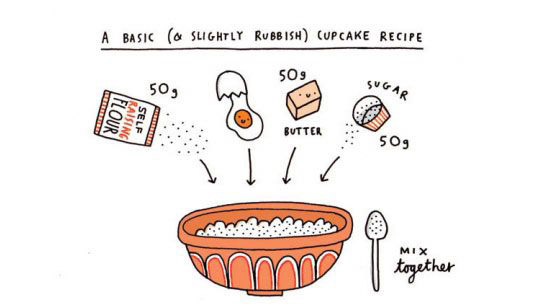 A BASIC (& SLIGHTLY RUBBISH) CUPCAKE RECIPE
50g
SELF
RAISING
FLOUR
50g
BUTTER
SUGAR
50g
MIX
together